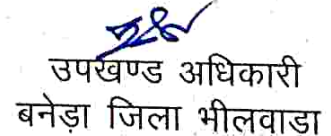 उपखण्ड अधिकारी
बनेड़ा जिला भीलवाडा